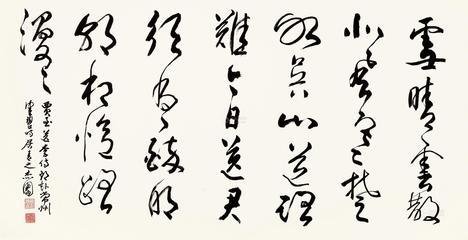 雪晴雲散
北風寒楚
水吳山道路
難今日送君
須盡醉明
朝相憶路
漫々
賈至送李侍郎赴常州